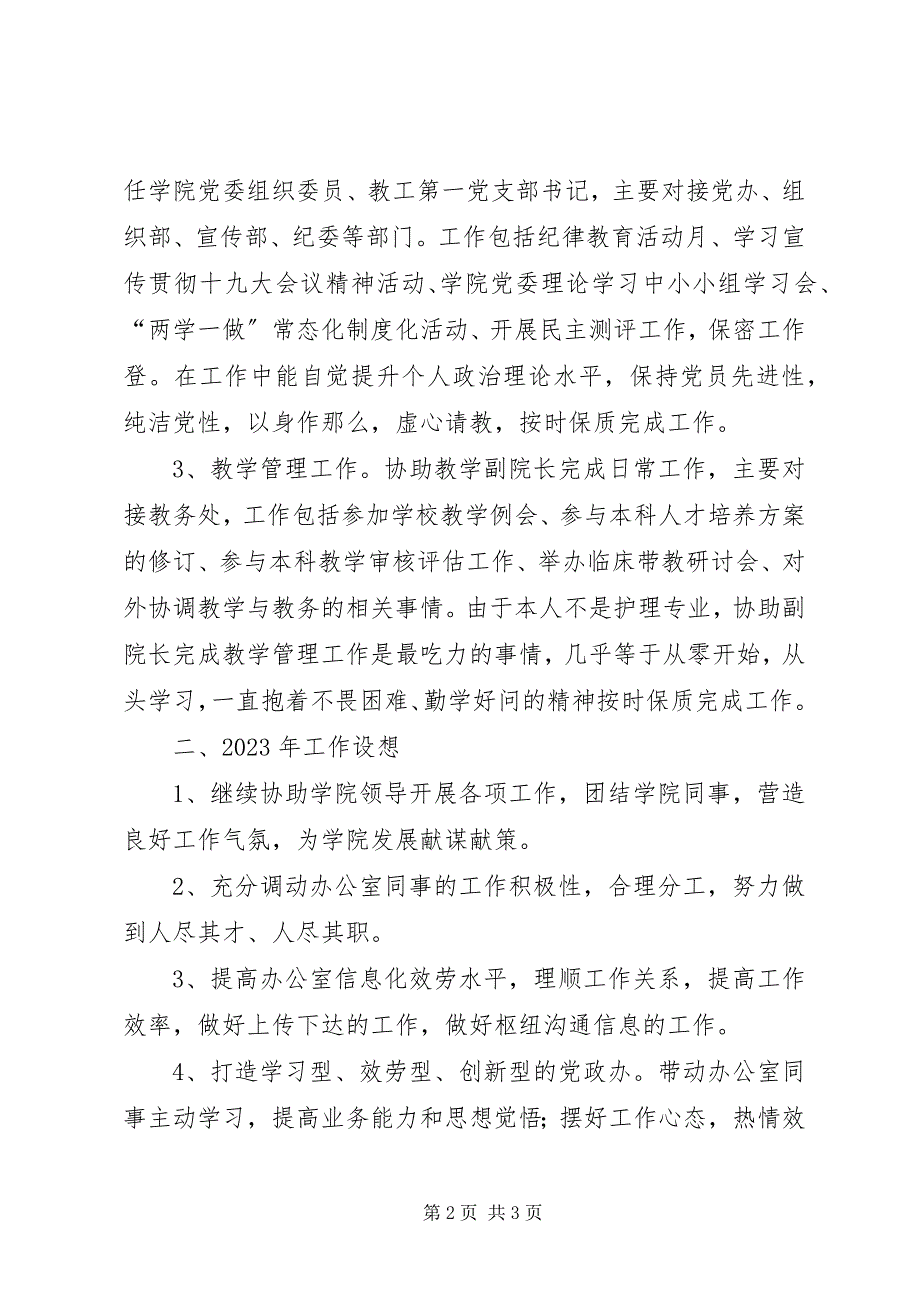 任学院党委组织委员、教工第一党支部书记，主要对接党办、组
织部、宣传部、纪委等部门。工作包括纪律教育活动月、学习宣
传贯彻十九大会议精神活动、学院党委理论学习中小小组学习会、
“两学一做〞常态化制度化活动、开展民主测评工作，保密工作
登。在工作中能自觉提升个人政治理论水平，保持党员先进性，
纯洁党性，以身作那么，虚心请教，按时保质完成工作。
3、教学管理工作。协助教学副院长完成日常工作，主要对
接教务处，工作包括参加学校教学例会、参与本科人才培养方案
的修订、参与本科教学审核评估工作、举办临床带教研讨会、对
外协调教学与教务的相关事情。由于本人不是护理专业，协助副
院长完成教学管理工作是最吃力的事情，几乎等于从零开始，从
头学习，一直抱着不畏困难、勤学好问的精神按时保质完成工作。
二、2023 年工作设想
1、继续协助学院领导开展各项工作，团结学院同事，营造
良好工作气氛，为学院发展献谋献策。
2、充分调动办公室同事的工作积极性，合理分工，努力做
到人尽其才、人尽其职。
3、提高办公室信息化效劳水平，理顺工作关系，提高工作
效率，做好上传下达的工作，做好枢纽沟通信息的工作。
4、打造学习型、效劳型、创新型的党政办。带动办公室同
事主动学习，提高业务能力和思想觉悟；摆好工作心态，热情效
第 2 页 共 3 页